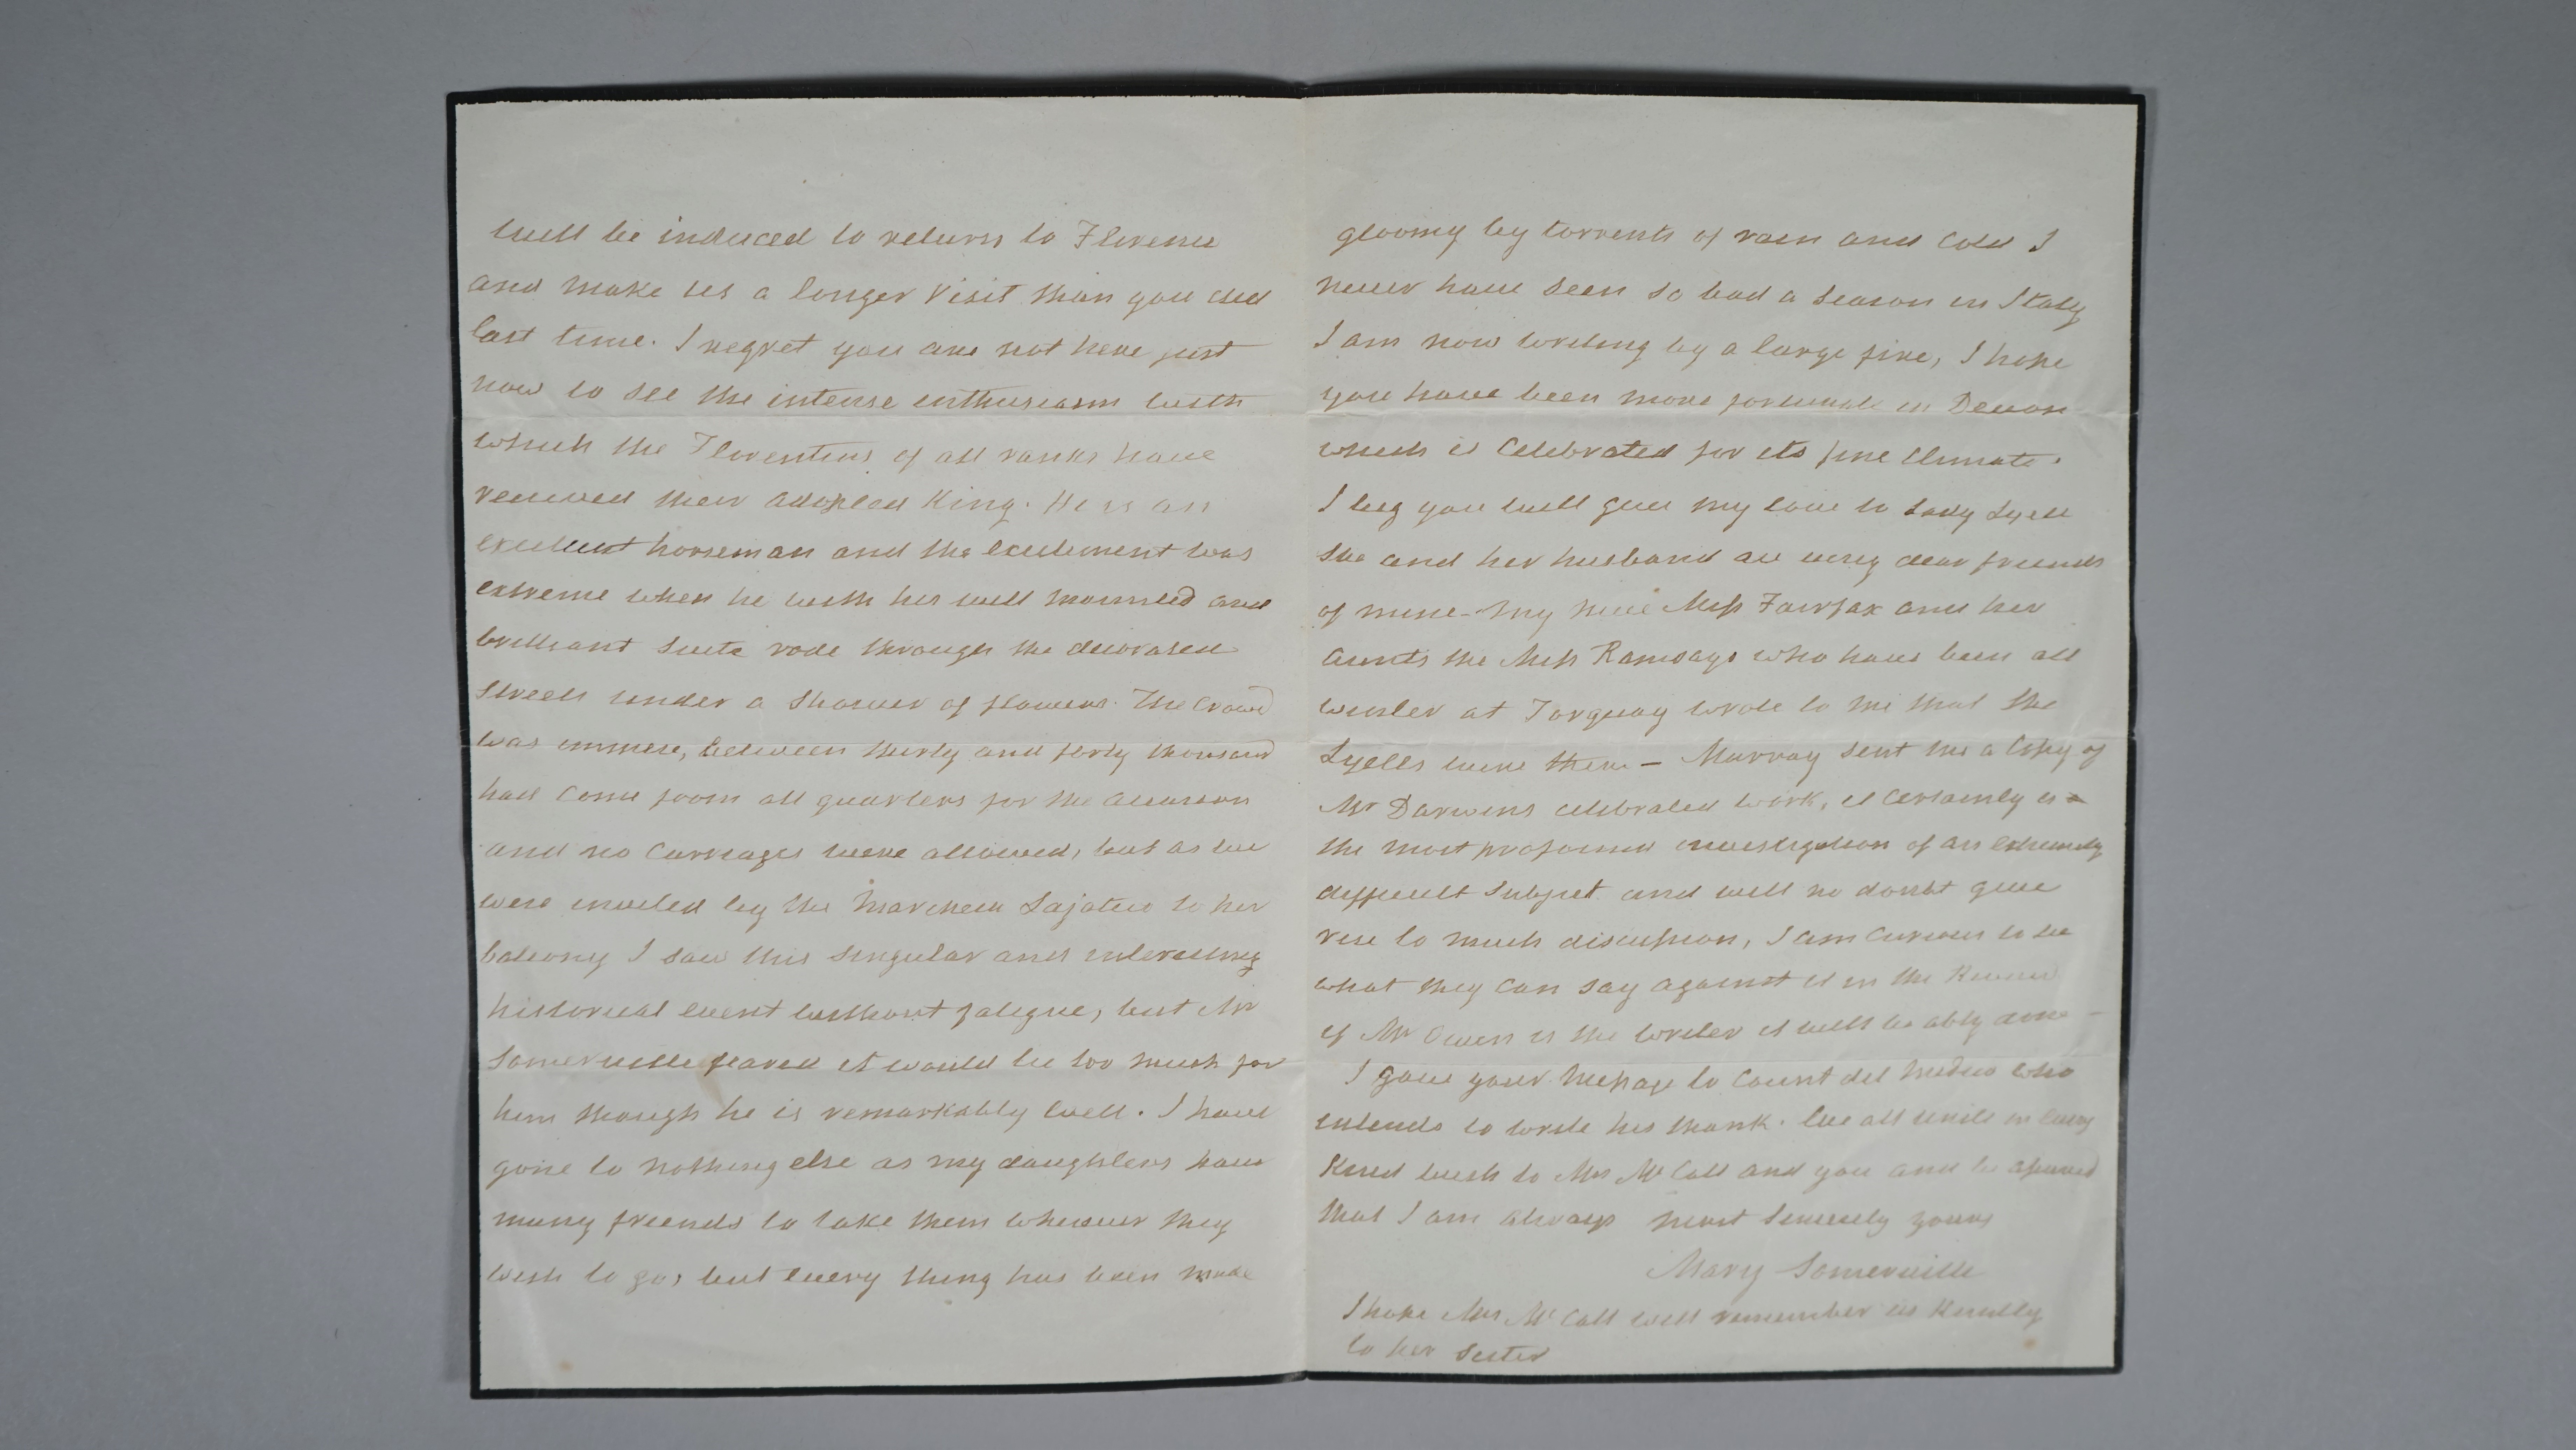 will be induced to return to Florence
and make us a longer visit than you did
last time. I regret you are not here just
now to see the intense enthusiasm with
which the Florentins of all ranks have
received their adopted King. He is an
excellent horseman and the excitement was
extreme when he with his well mounted and
brilliant suite rode through the decorated
streets under a shower of flowers. The crowd
was immense, between thirty and forty thousand
had come from all quarters for the occasion
and no carriages were allowed, but as we
were invited by the to her
balcony I saw this singular and interesting
historical event without fatigue, but Mr
Somerville feared it would be too much for
him though he is remarkably well. I have
gone to nothing else as my daughters have
many friends to take them wherever they
wish to go, but every thing has been made
gloomy by torrents of rain and cold I
never have seen so bad a season in Italy
I am now writing by a large fire, I hope
you have been more fortunate in Devon
which is celebrated for its fine climate.
I beg you will give my love to Lady Lyell
she and her husband are very dear friends
of mine - my niece Miss Fairfax and her
aunts the Miss Ramsays who have been all
winter at Torquay wrote to me that the
Lyells were there — Murray sent me a copy of
Mr Darwins celebrated work, it certainly is
the most profound investigation of an extremely
difficult subject and will no doubt give
rise to much discussion, I am curious to see
what they can say against it in the Review
if Mr Owen is the writer it will be ably done -
I gave your message to Count del Medico who
intends to write his thank. We all unite in every
kind wish to Mrs McCall and you and be assured
that I am always most sincerely yours
Mary Somerville
I hope Mrs McCall will remember us kindly
to her sister